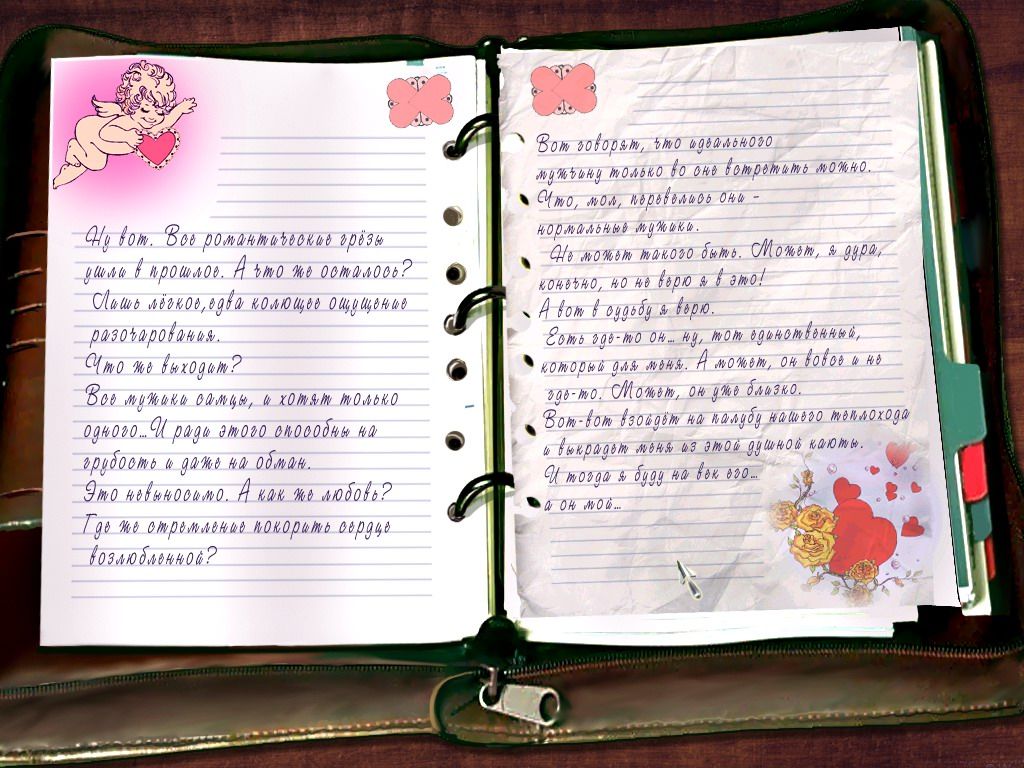 Ну вот. Все романтические грёзы
ушли в прошлое. А что же осталось?
Лишь лёгкое,едва колющее ощущение
разочарования.
Что же выходит?
Все мужики самцы, и хотят только
одного...И ради этого способны на
грубость и даже на обман.
Это невыносимо. А как же любовь?
Где же стремление покорить сердце
возлюбленной?
Вот говорят, что идеального
мужчину только во сне встретить можно.
Что, мол, перевелись они -
нормальные мужики.
Не может такого быть. Может, я дура,
конечно, но не верю я в это!
А вот в судьбу я верю.
Есть где-то он... ну, тот единственный,
который для меня. А может, он вовсе и не
где-то. Может, он уже близко.
Вот-вот взойдёт на палубу нашего теплохода
и выкрадет меня из этой душной каюты.
И тогда я буду на век его...
а он мой...